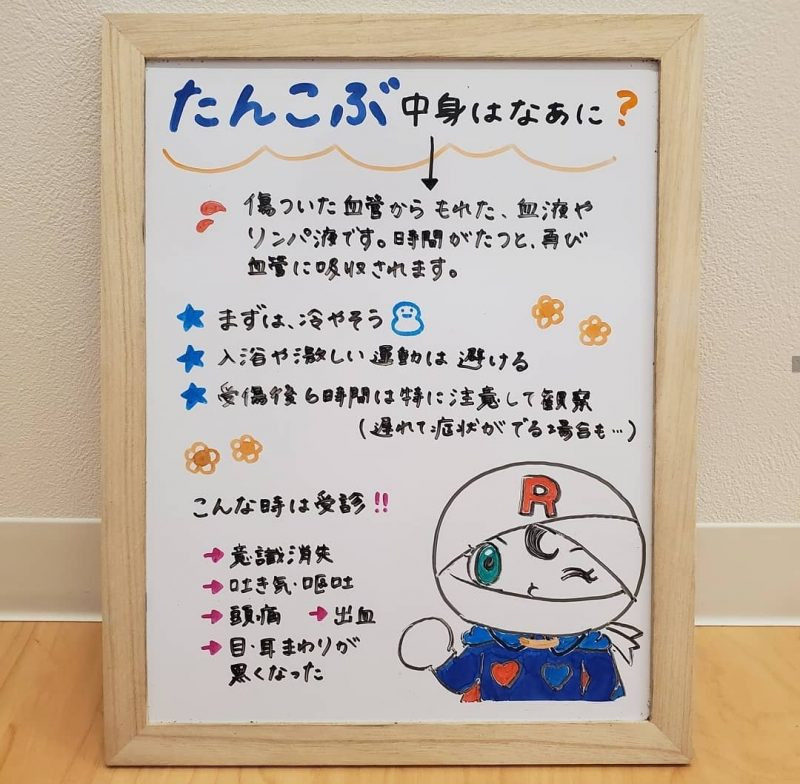 たんこぶ中身はなあに?
傷ついた血管からもれた、血液や
リンパ液です。時間がたつと、再び
血管に吸収されます。
まずは、冷やそう
入浴や激しい運動は避ける
受傷後6時間は特に注意して観察
(遅れて症状がでる場合も…)
こんな時は受診!!
意識消失
吐き気・嘔吐
頭痛 出血
目・耳まわりが
黒くなった
R